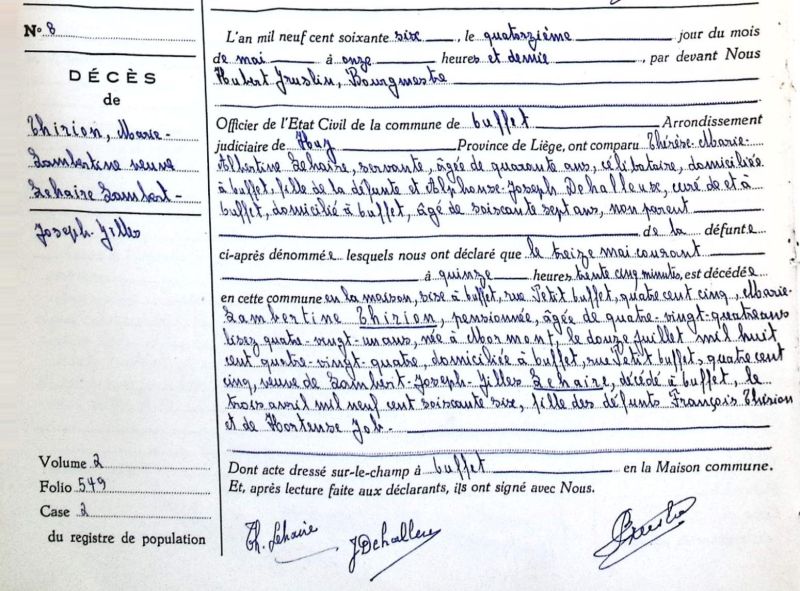 N° 8
DÉCÈS
de
Thirion, Marie-
Lambertine veuve
Lehaire Lambert-
Joseph-Gilles
Volume 2
Folio 549
Case 2
du registre de population
L'an mil neuf cent soixante six, le quatorzième jour du mois
de mai à onze heures et demie, par devant Nous
Hubert Gruslin, Bourgmestre
Officier de l'Etat Civil de la commune de Buffet Arrondissement
judiciaire de Huy Province de Liège, ont comparu Thérèse-Marie-
Albertine Lehaire, servante, âgée de quarante ans, célibataire, domiciliée
à Buffet, fille de la défunte et Alphonse-Joseph Dehalleux, curé de et à
Buffet, domicilié à Buffet, âgé de soixante sept ans, non parent
de la défunte
ci-après dénommée lesquels nous ont déclaré que le treize mai courant
à quinze heures trente cinq minutes, est décédée
en cette commune en la maison, sise à Buffet, rue Petit Buffet, quatre cent cinq, Marie-
Lambertine Thirion, pensionnée, âgée de quatre-vingt-quatre ans
lisez quatre-vingt-un ans, née à Mormont, le douze juillet mil huit
cent quatre-vingt-quatre, domiciliée à Buffet, rue Petit Buffet, quatre cent
cinq, veuve de Lambert-Joseph-Gilles Lehaire, décédé à Buffet, le
trois avril mil neuf cent soixante six, fille des défunts François Thirion
et de Hortense Job.
Dont acte dressé sur-le-champ à Buffet en la Maison commune.
Et, après lecture faite aux déclarants, ils ont signé avec Nous.
Th. Lehaire
J Dehalleux